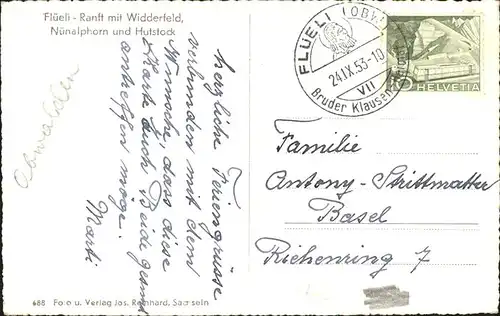 Flüeli - Ranft mit Widderfeld,
Nünalphorn und Hutstock
FLÜELI (OBW.)
24.IX.53-10
VII
Bruder Klausen
HELVETIA
Obwalden
herzliche Feriengrüsse
verbunden mit dem
Wunsch, dass diese
Karte Euch Beide gesund
antreffen möge.
Marti
Familie
Antony-Strittmatter
Basel
Riehenring 7
688 Foto u. Verlag Jos. Reinhard, Sachseln